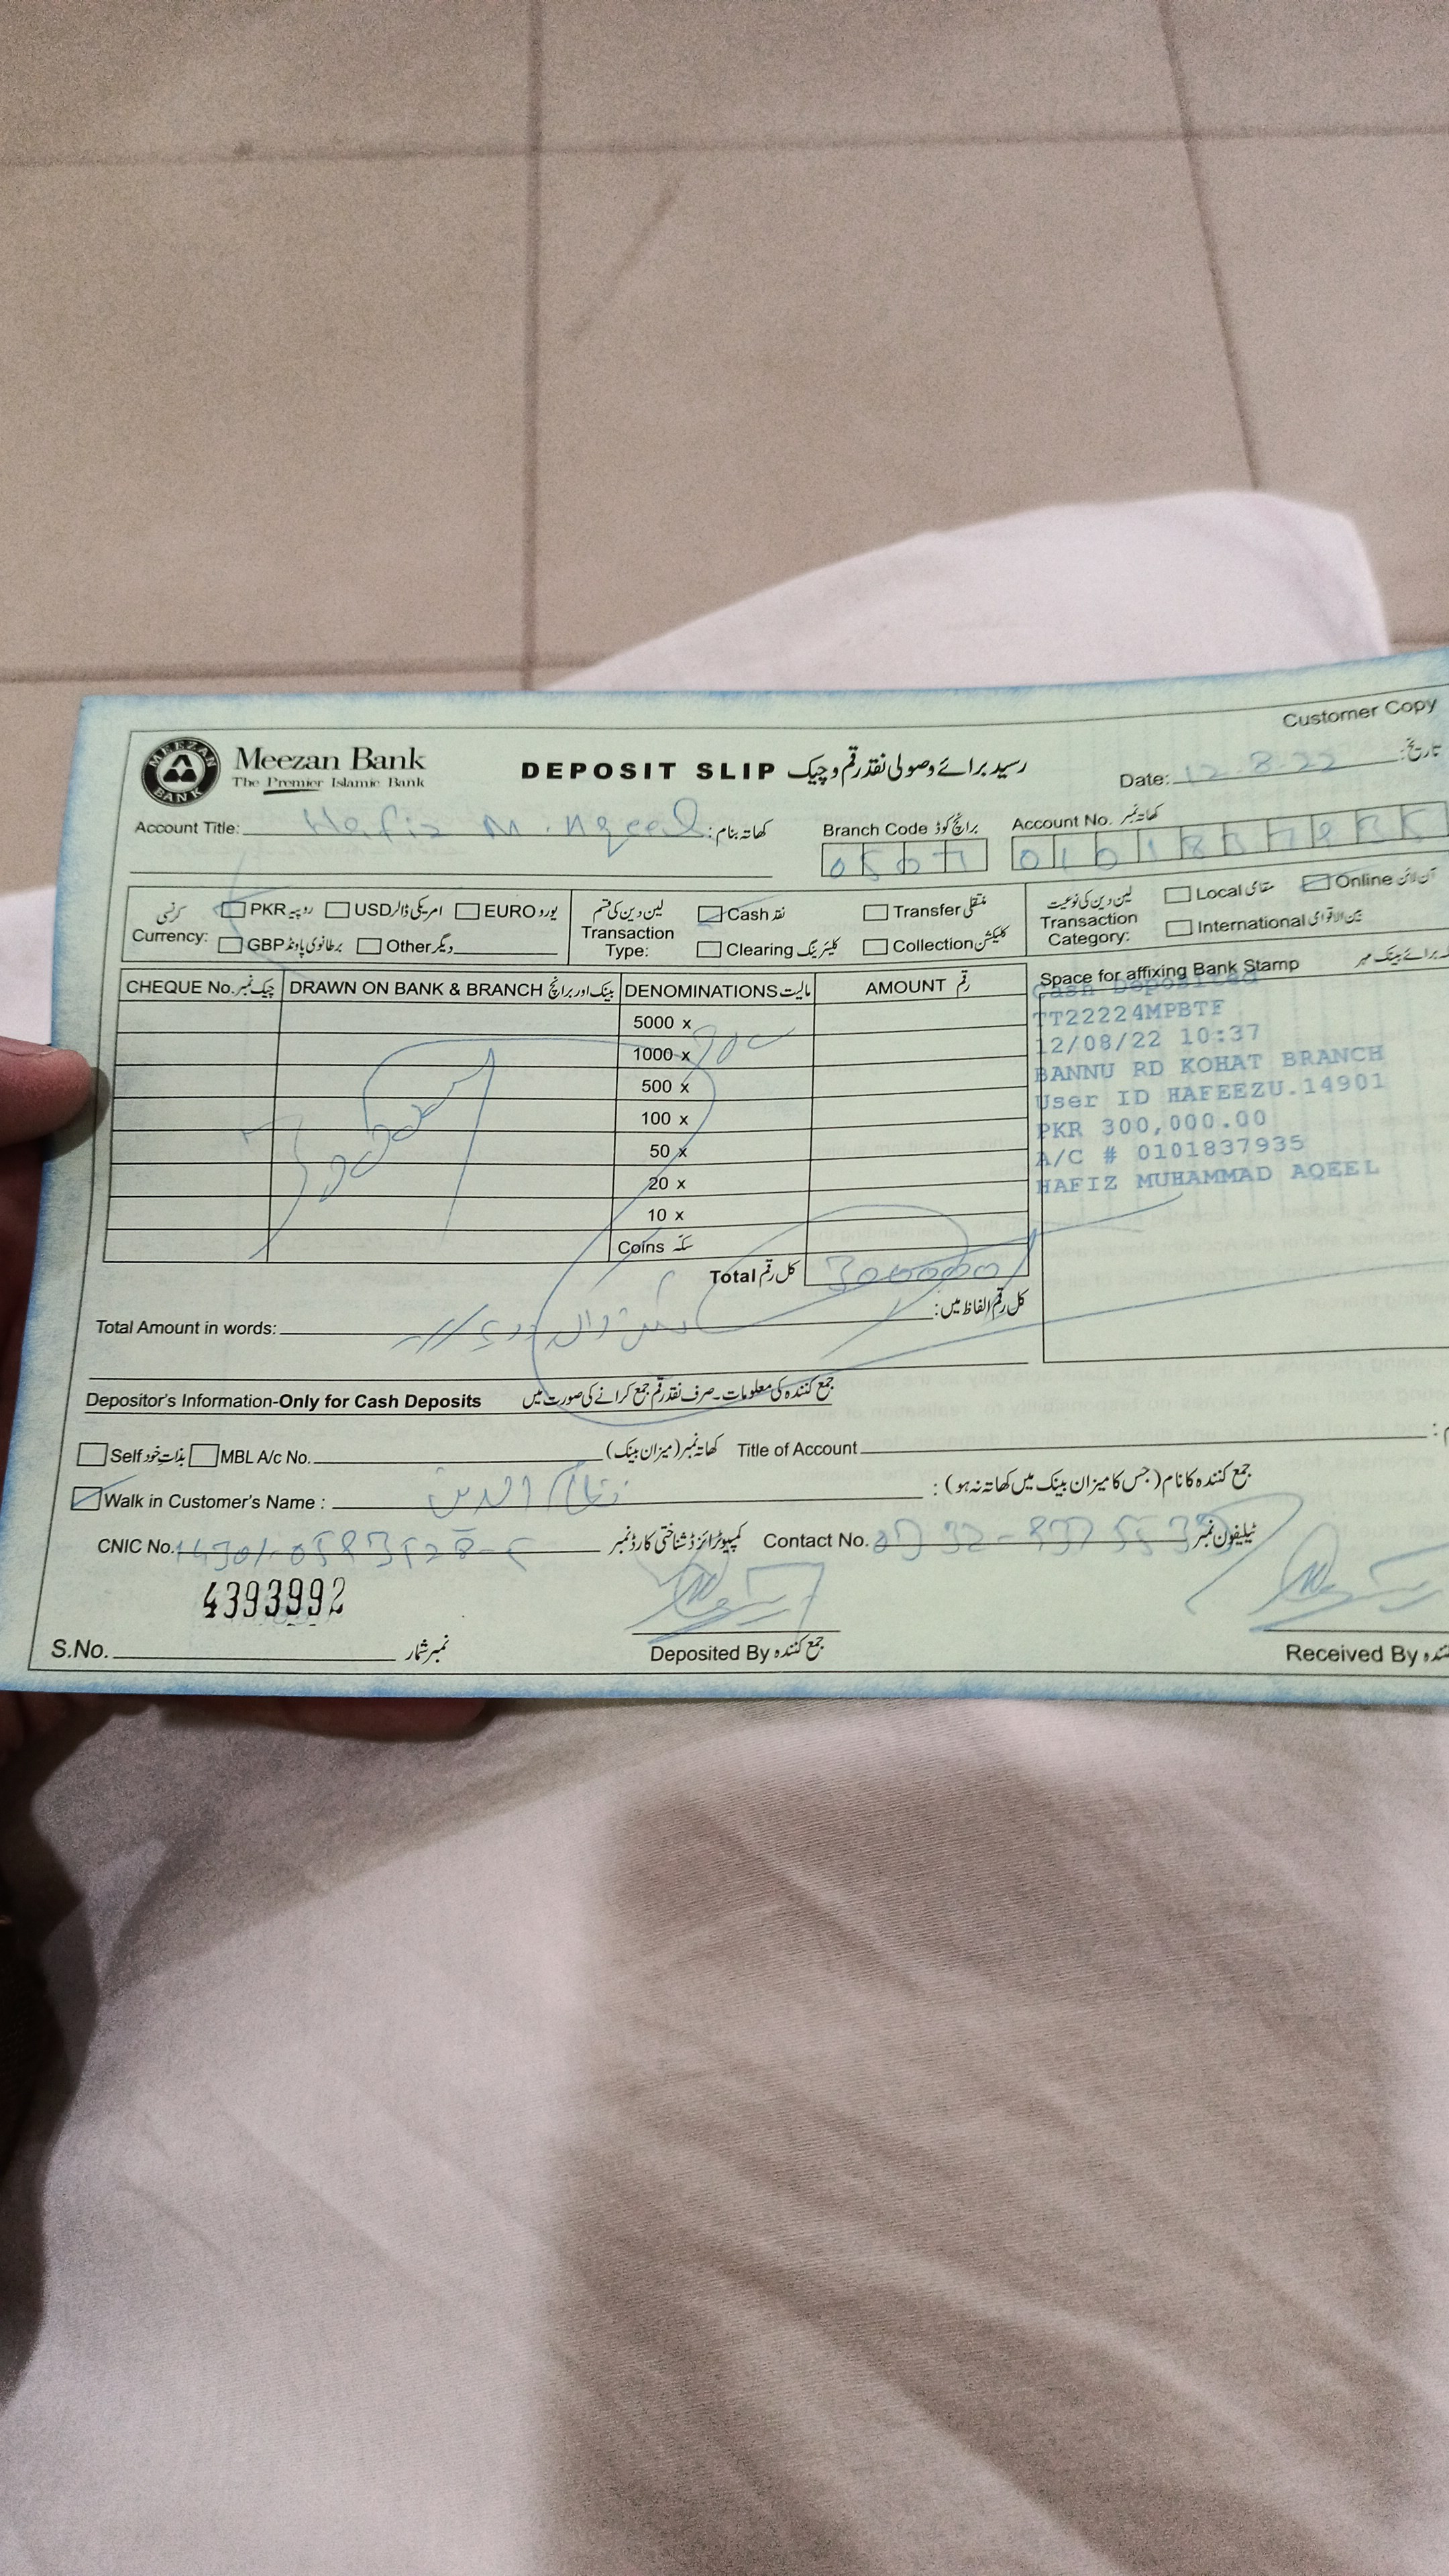 Customer Copy
MEEZAN BANK
Meezan Bank
The Premier Islamic Bank
DEPOSIT SLIP رسید برائے وصولی نقد رقم و چیک
Date: 12-8-22 تاریخ:
Account Title: Hafiz M. Aqeel کھاتہ بنام:
Branch Code برانچ کوڈ
Account No. کھاتہ نمبر
کرنسی
Currency:
PKR روپیہ USD امریکی ڈالر EURO یورو
GBP برطانوی پاونڈ Other دیگر
لین دین کی قسم
Transaction Type:
Cash نقد Transfer منتقلی
Clearing کلیئرنگ Collection کلیکشن
لین دین کی نوعیت
Transaction Category:
Local مقامی Online آن لائن
International بین الاقوامی
CHEQUE No. چیک نمبر DRAWN ON BANK & BRANCH بینک اور برانچ DENOMINATIONS مالیت AMOUNT رقم
5000 x
1000 x
500 x
100 x
50 x
20 x
10 x
Coins سکّہ
Total کل رقم 300000
Space for affixing Bank Stamp
Cash Deposited
TT22224MPBTF
12/08/22 10:37
BANNU RD KOHAT BRANCH
User ID HAFEEZU.14901
PKR 300,000.00
A/C # 0101837935
HAFIZ MUHAMMAD AQEEL
Total Amount in words: کل رقم الفاظ میں:
Depositor's Information-Only for Cash Deposits جمع کنندہ کی معلومات۔ صرف نقد رقم جمع کرانے کی صورت میں
Self بذات خود MBL A/c No. کھاتہ نمبر (میزان بینک) Title of Account
Walk in Customer's Name : جمع کنندہ کا نام (جس کا میزان بینک میں کھاتہ نہ ہو) :
CNIC No. کمپیوٹرائزڈ شناختی کارڈ نمبر Contact No. ٹیلیفون نمبر
4393992
S.No. نمبر شمار
Deposited By جمع کنندہ
Received By